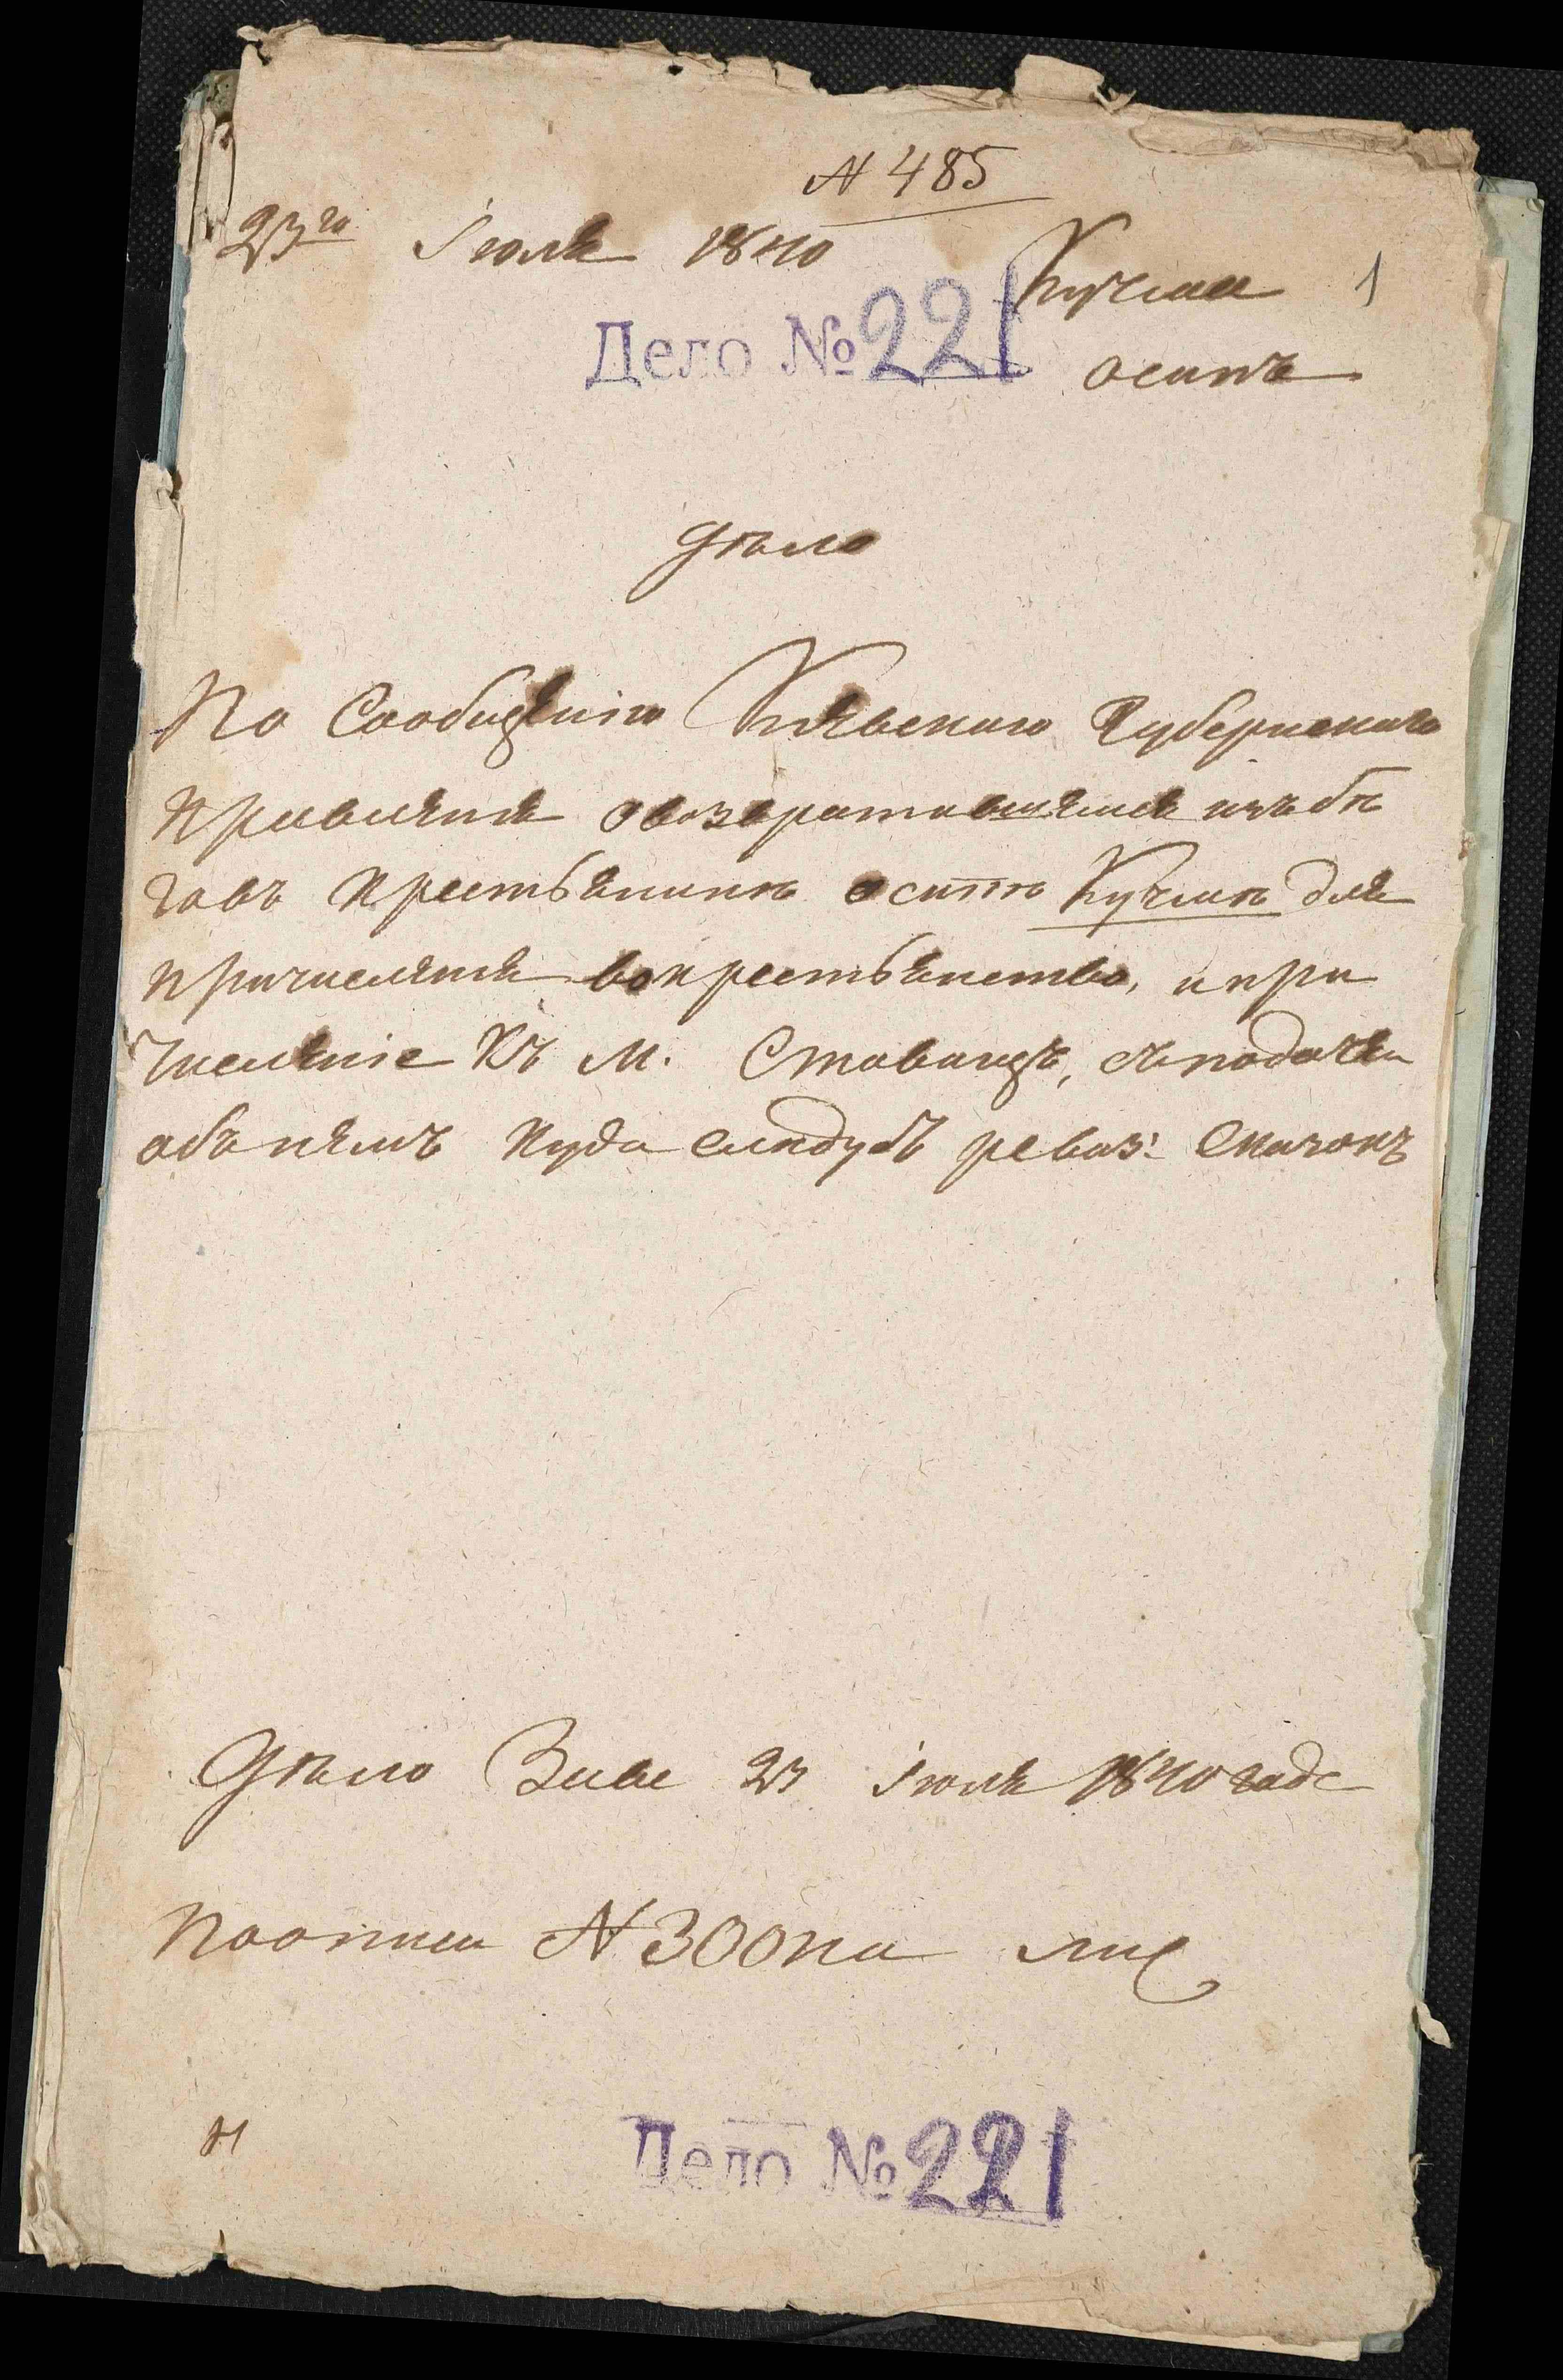 N 485
23го Іюля 1840
Кучма 1
Дело № 221
осипъ
дѣло
По Сообщенію Кіевскаго Губернскаго
Правленія овозвратившемся изъ бѣ
говъ крестьянинѣ осипѣ Кучмѣ для
причисленія вокрестьянство, и при
численіе Къ М. Ставищъ, съподачею
объ нѣмъ куда слѣдуетъ ревиз: Сказокъ
Дѣло 23 іюля 1840 года
Поописи N 300 на лис
Дело № 221